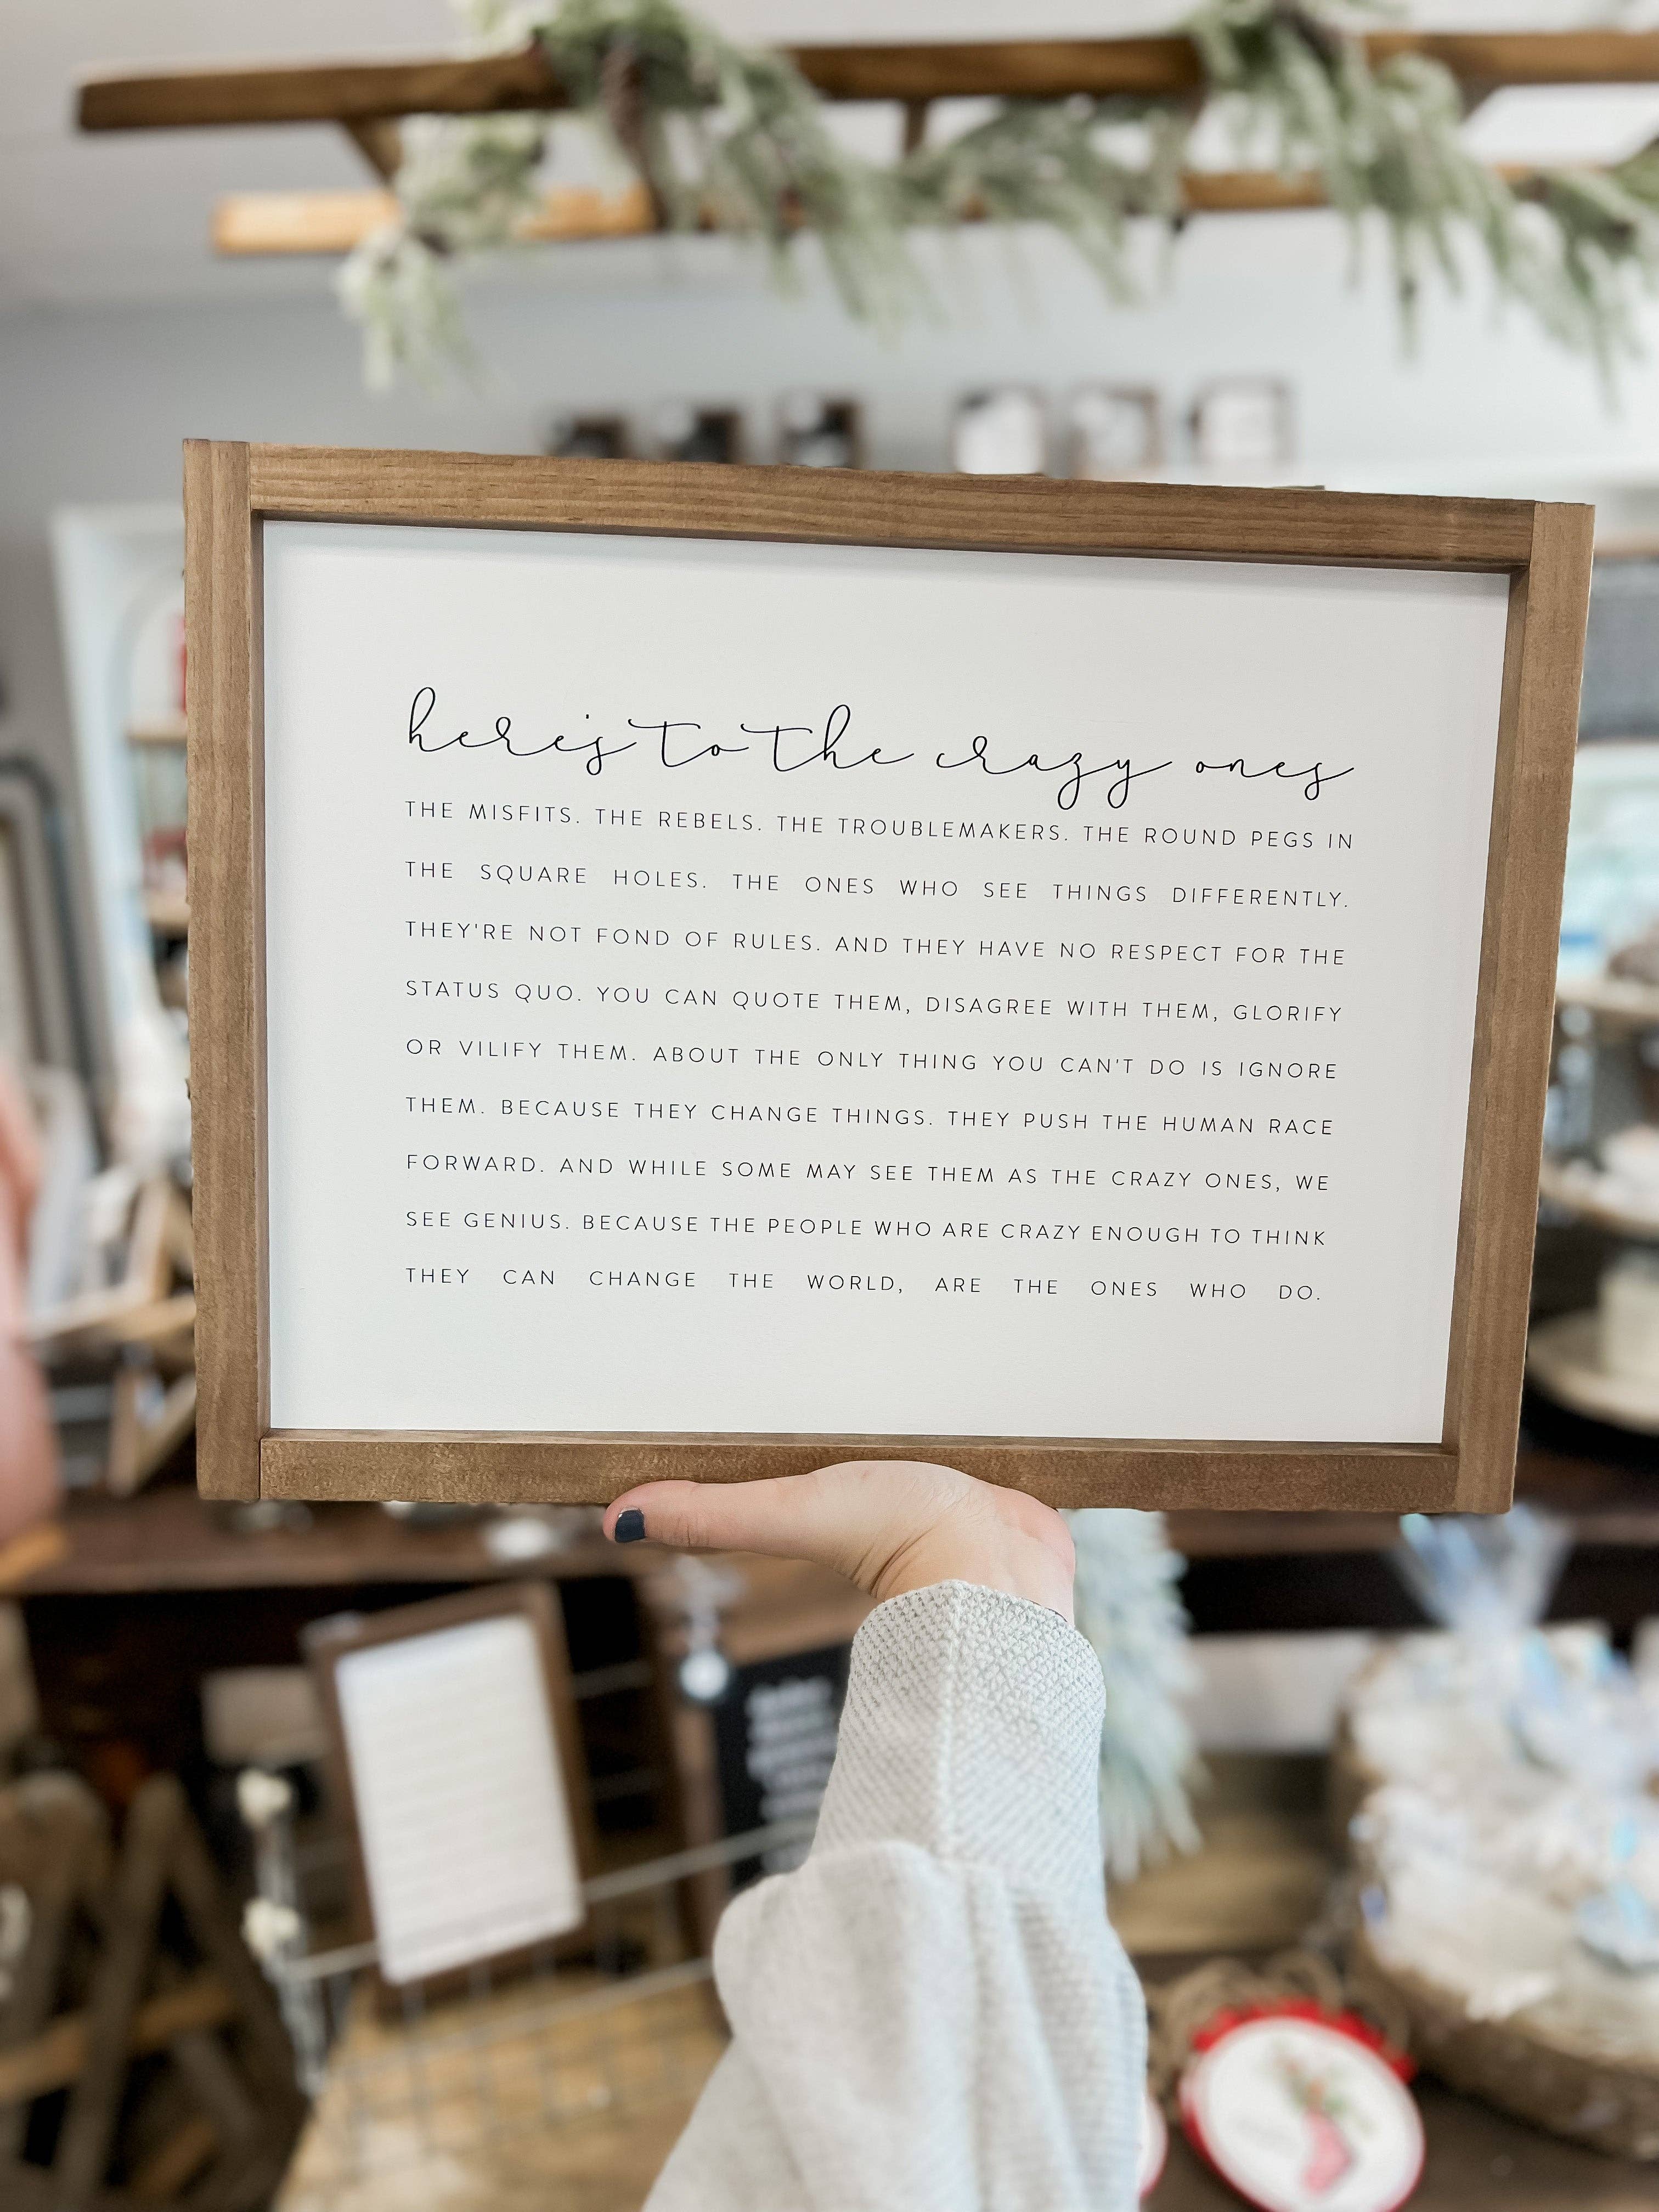 here's to the crazy ones
THE MISFITS. THE REBELS. THE TROUBLEMAKERS. THE ROUND PEGS IN
THE SQUARE HOLES. THE ONES WHO SEE THINGS DIFFERENTLY.
THEY'RE NOT FOND OF RULES. AND THEY HAVE NO RESPECT FOR THE
STATUS QUO. YOU CAN QUOTE THEM, DISAGREE WITH THEM, GLORIFY
OR VILIFY THEM. ABOUT THE ONLY THING YOU CAN'T DO IS IGNORE
THEM. BECAUSE THEY CHANGE THINGS. THEY PUSH THE HUMAN RACE
FORWARD. AND WHILE SOME MAY SEE THEM AS THE CRAZY ONES, WE
SEE GENIUS. BECAUSE THE PEOPLE WHO ARE CRAZY ENOUGH TO THINK
THEY CAN CHANGE THE WORLD, ARE THE ONES WHO DO.